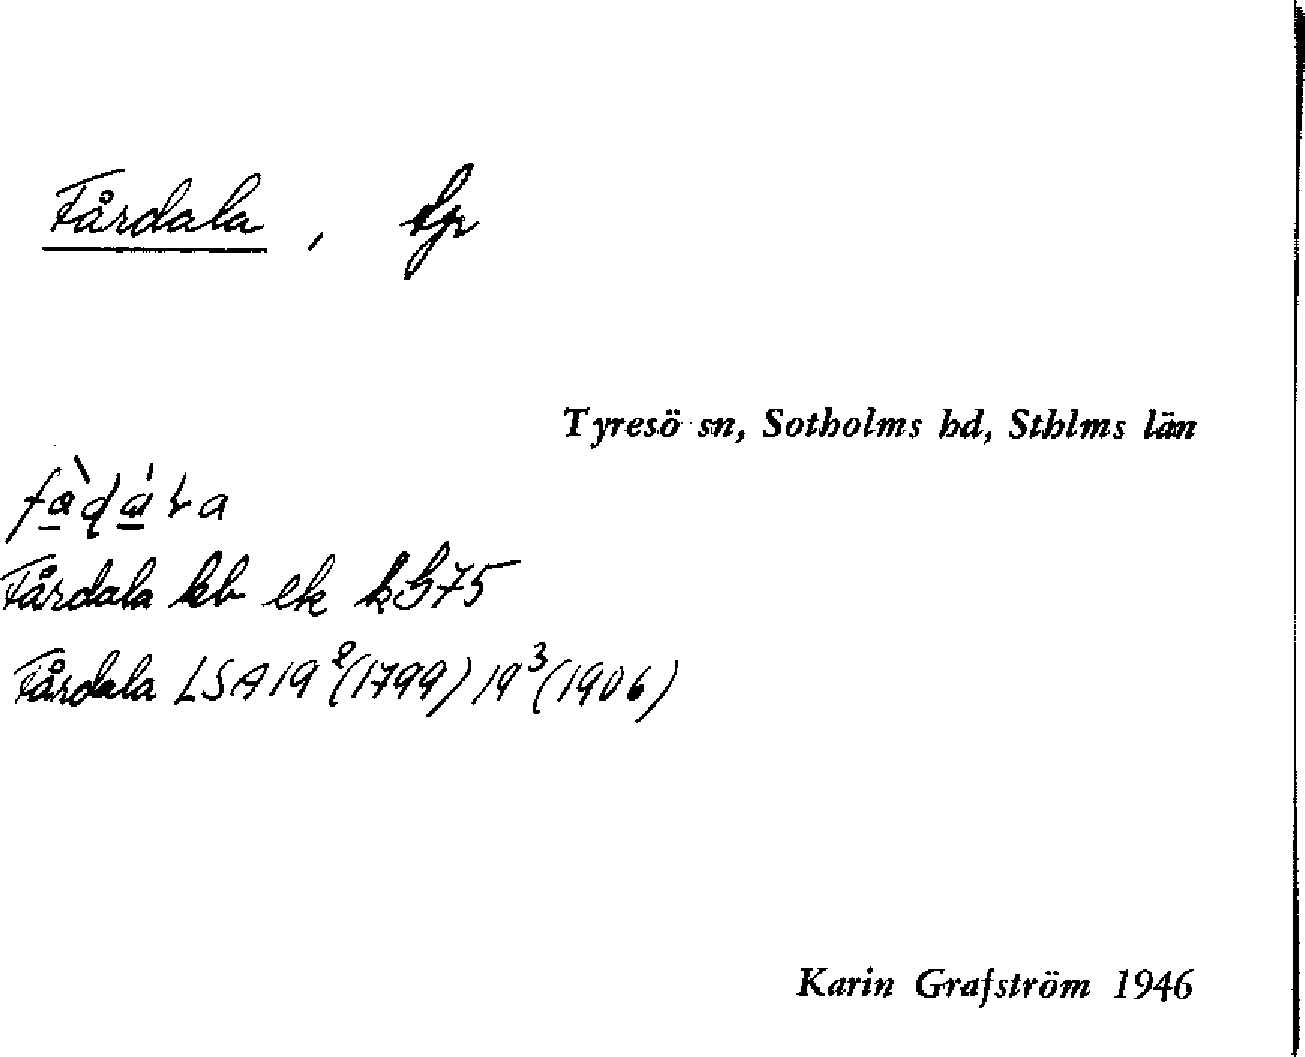 Fårdala , tp
Tyresö sn, Sotholms hd, Sthlms län
Fårdala kb ek kG75
Fårdala LSA 19²(1799) 19³(1906)
Karin Grafström 1946